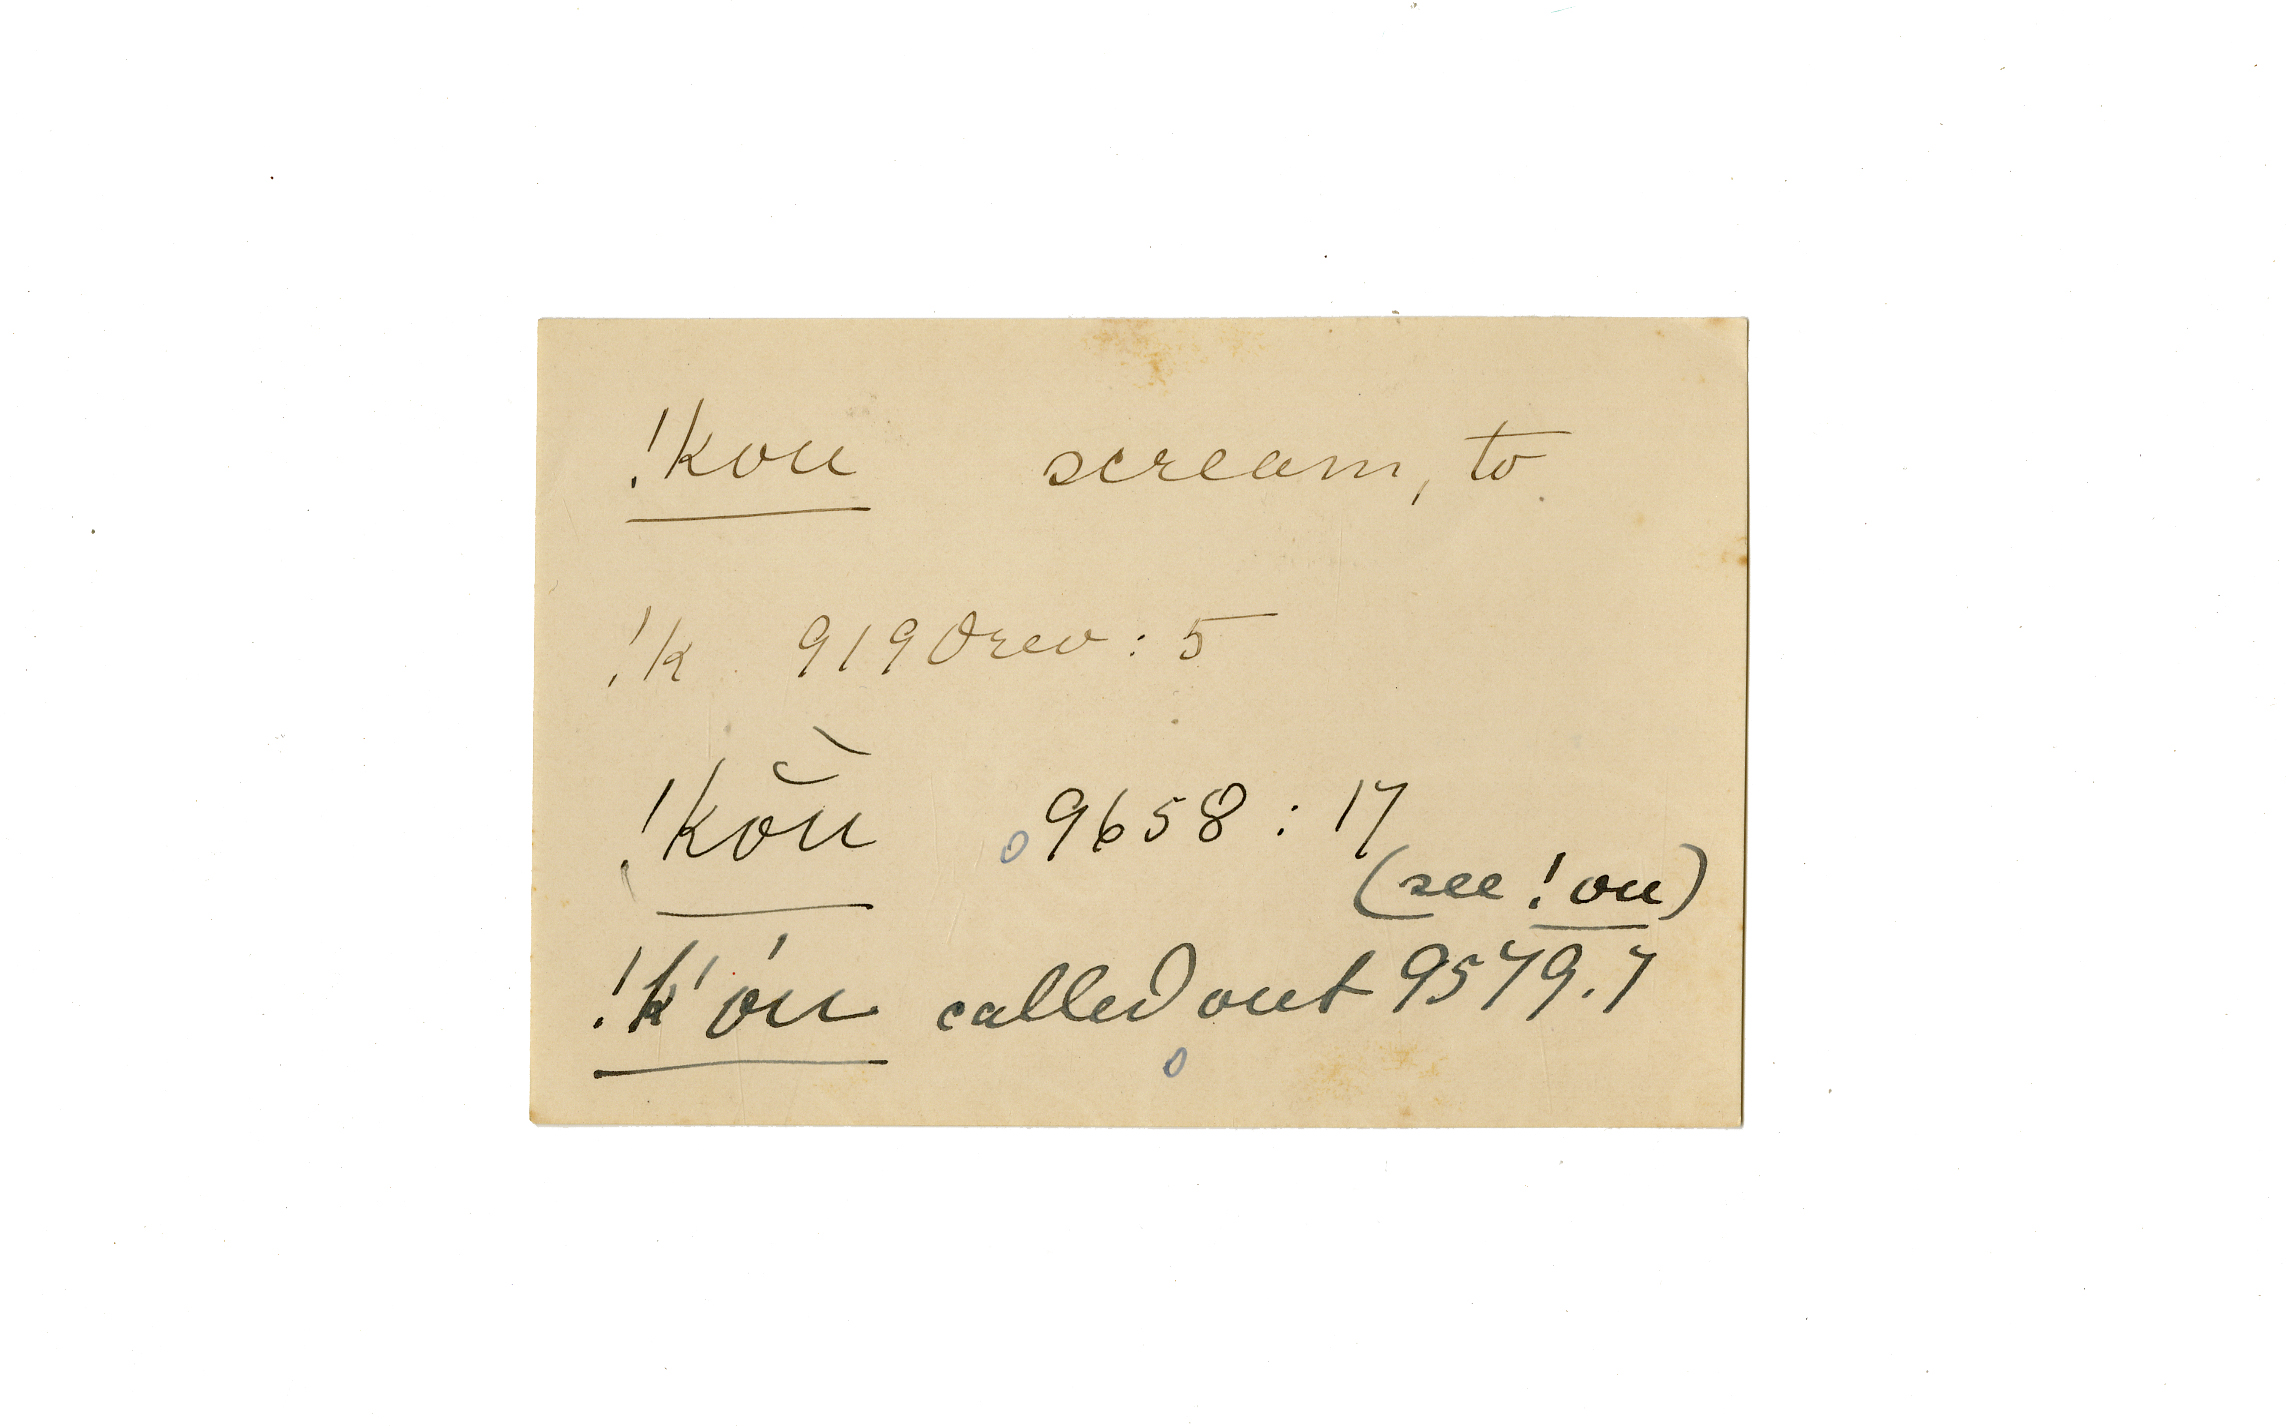 !kou scream, to
!k 9190rev : 5
!kŏ̀u 9658 : 17
(see !ou)
!k'óu called out 9579.7